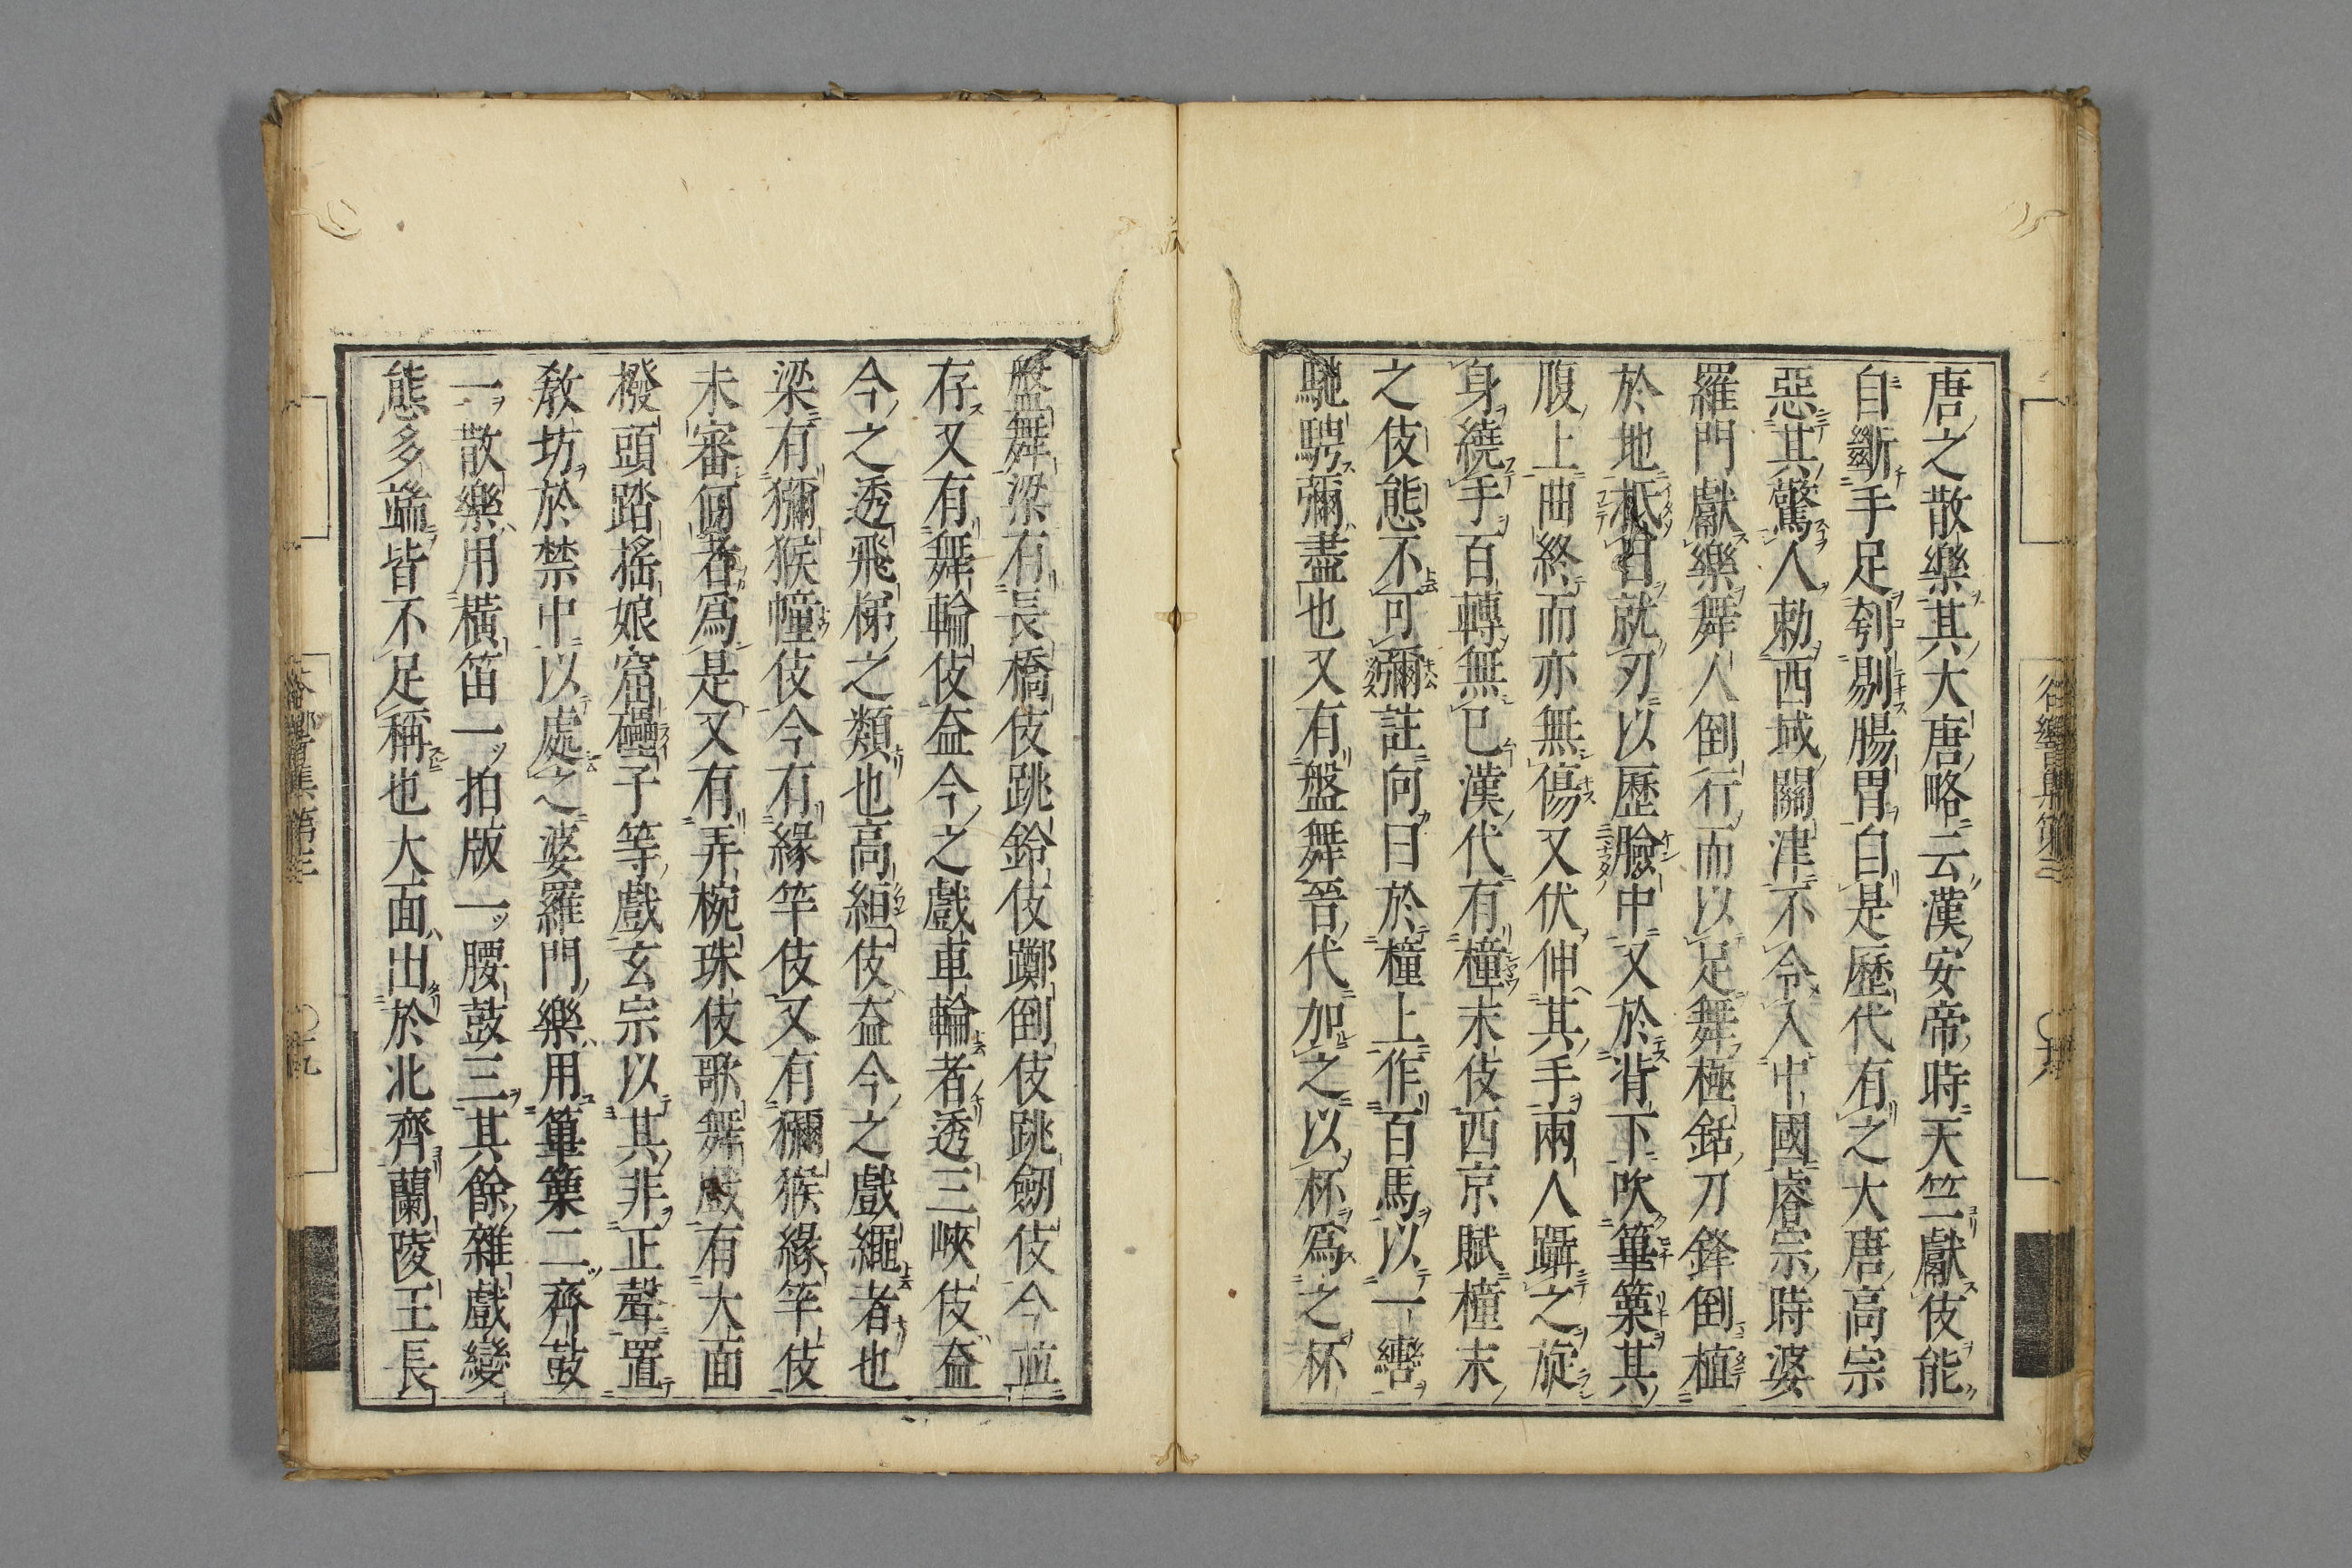 唐之散樂其大唐略云漢安帝時天竺獻伎能
自斷手足刳剔腸胃自是歷代有之大唐高宗
惡其驚人勅西域關津不令入中國睿宗時婆
羅門獻樂舞人倒行而以足舞極銛刀鋒倒植
於地柢目就刃以歷臉中又於背下吹篳篥其
腹上曲終而亦無傷又伏伸其手兩人躡之旋
身繞手百轉無已漢代有橦末伎西京賦橦末
之伎態不可彌註向曰於橦上作百馬以一轡
馳騁彌盡也又有盤舞晉代加之以杯爲之杯
盤舞梁有長橋伎跳鈴伎躑倒伎跳劒伎今並
存又有舞輪伎益今之戲車輪者透三峽伎益
今之透飛梯之類也高絙伎益今之戲繩者也
梁有獼猴幢伎今有緣竿伎又有獼猴緣竿伎
未審何者爲是又有弄椀珠伎歌舞戲有大面
撥頭踏搖娘窟礧子等戲玄宗以其非正聲置
敎坊於禁中以處之婆羅門樂用篳篥二齊鼓
一散樂用橫笛一拍版一腰鼓三其餘雜戲變
態多端皆不足稱也大面出於北齊蘭陵王長